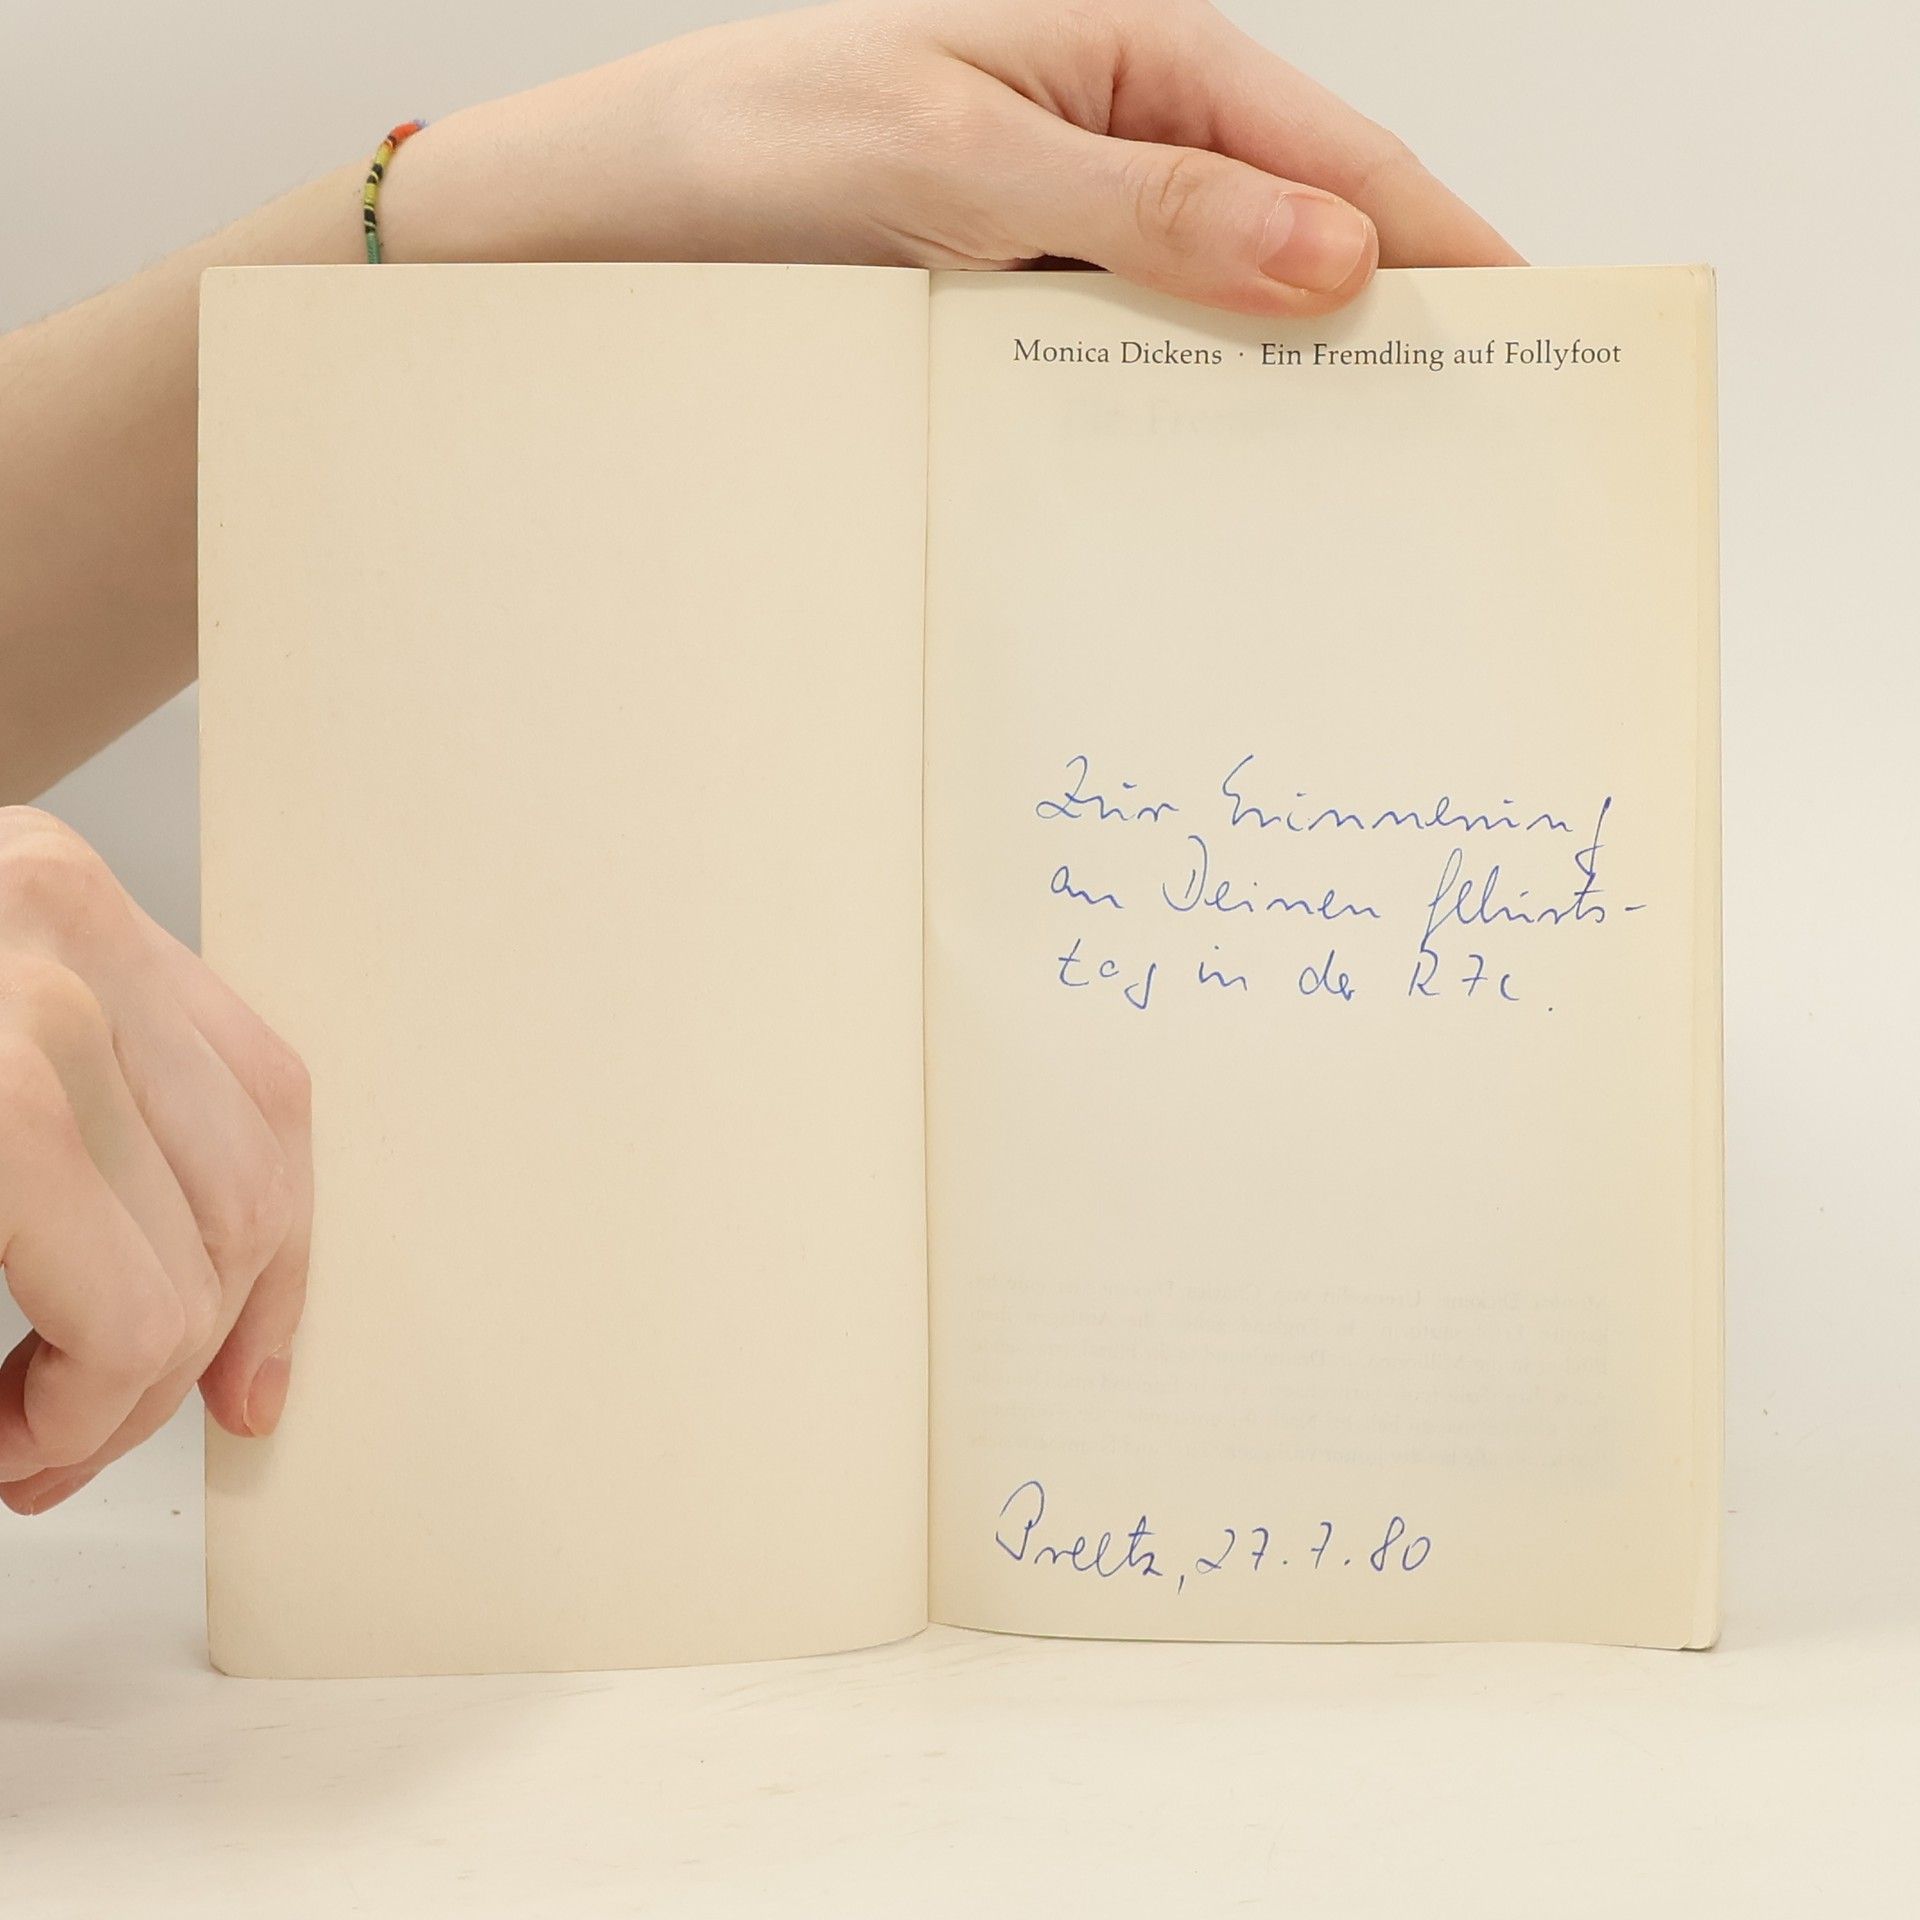 Monica Dickens · Ein Fremdling auf Follyfoot
Zur Erinnerung
an Deinen Geburts-
tag in der R7c.
Preetz, 27.7.80